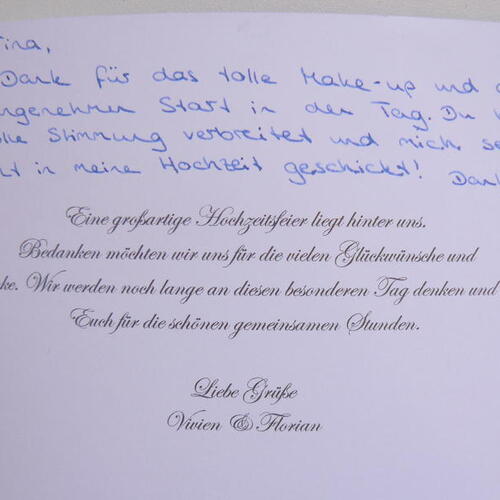 ina,
Dank für das tolle Make-up und
ngenehmen Start in den Tag. Du
lle Stimmung verbreitet und mich se
t in meine Hochzeit geschickt! Dank
Eine großartige Hochzeitsfeier liegt hinter uns.
Bedanken möchten wir uns für die vielen Glückwünsche und
ke. Wir werden noch lange an diesen besonderen Tag denken und
Euch für die schönen gemeinsamen Stunden.
Liebe Grüße
Vivien & Florian